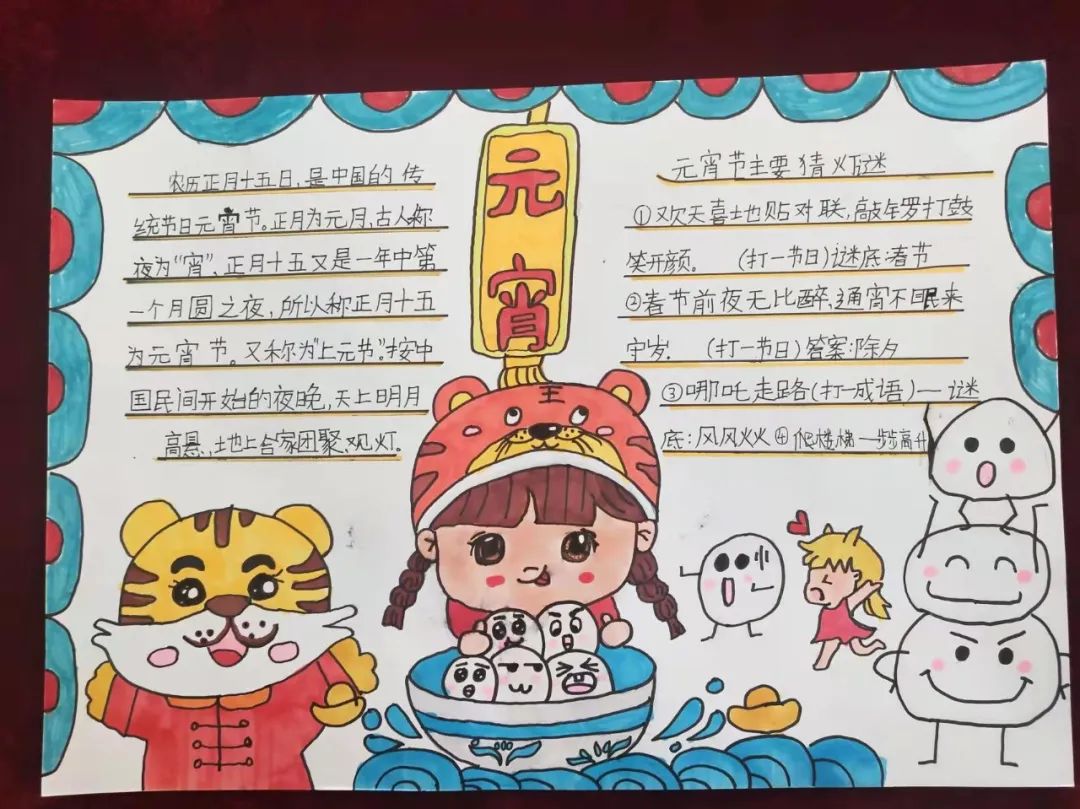 元宵
农历正月十五日,是中国的传
统节日元宵节。正月为元月,古人称
夜为“宵”、正月十五又是一年中第
一个月圆之夜,所以称正月十五
为元宵节。又称为“上元节”。按中
国民间开始的夜晚,天上明月
高悬,土地上合家团聚、观灯。
元宵节主要猜火灯谜
①欢天喜地贴对联,敲年罗打鼓
笑开颜。(打一节日)谜底:春节
②春节前夜无比醉,通宵不眠来
守岁.(打一节日)答案:除夕
③哪吒走路(打一成语)—谜
底:风风火火④爬楼梯一步步高升
王